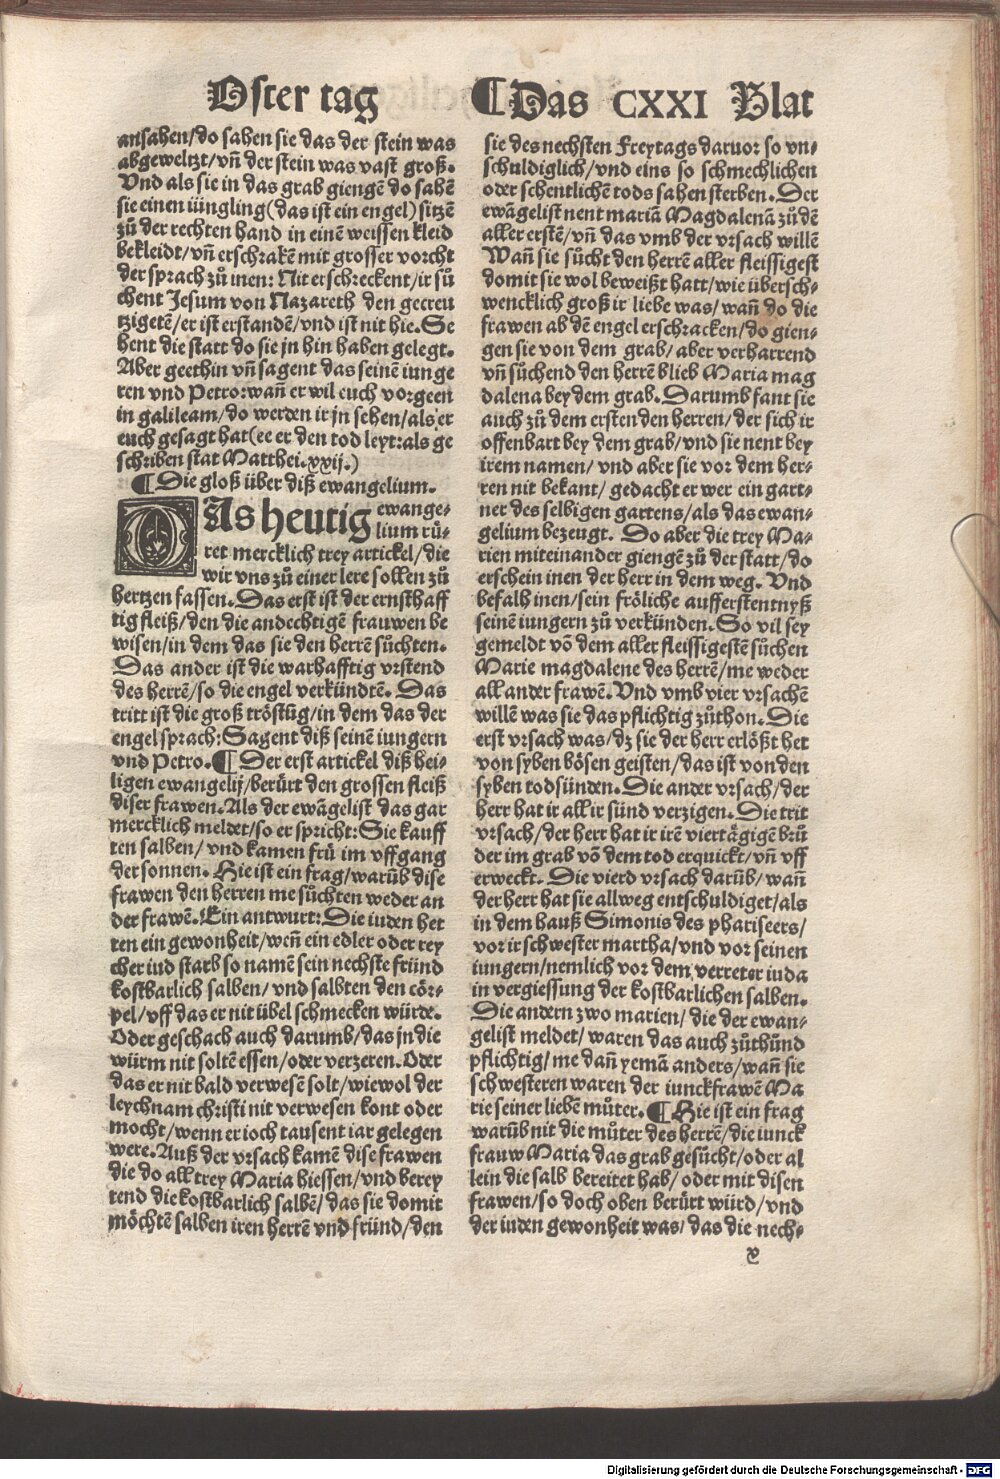 Oster tag
¶Das CXXI Blat
ansahen/do sahen sie das der stein was
abgeweltzt/vñ der stein was vast groß.
Vnd als sie in das grab giengē do sahē
sie einen iüngling(das ist ein engel)sitzē
zů der rechten hand in einē weissen kleid
bekleidt/vñ erschrakē mit grosser vorcht
der sprach zů inen: Nit erschreckent/ir sů
chent Jesum von Nazareth den gecreu
tzigetē/er ist erstandē/vnd ist nit hie. Se
hent die statt do sie jn hin haben gelegt.
Aber geethin vñ sagent das seinē iunge
ren vnd Petro: wañ er wil euch vorgeen
in galileam/do werden ir jn sehen/als er
euch gesagt hat(ee er den tod leyt: als ge
schriben stat Matthei.xxij.)
¶Die gloß über diß ewangelium.
DAs heutig ewange⸗
lium rü⸗
ret mercklich trey artickel/die
wir vns zů einer lere sollen zů
hertzen fassen. Das erst ist der ernsthaff
tig fleiß/den die andechtigē frauwen be
wisen/in dem das sie den herrē sůchten.
Das ander ist die warhafftig vrstend
des herrē/so die engel verkündtē. Das
tritt ist die groß tröstūg/in dem das der
engel sprach: Sagent diß seinē iungern
vnd Petro. ¶Der erst artickel diß hei⸗
ligen ewangelij/berürt den grossen fleiß
diser frawen. Als der ewāgelist das gar
mercklich meldet/so er spricht: Sie kauff
ten salben/ vnd kamen frü im vffgang
der sonnen. Hie ist ein frag/warūb dise
frawen den herren me sůchten weder an
der frawē. Ein antwurt: Die iuden het
ten ein gewonheit/weñ ein edler oder rey
cher iud starb so namē sein nechste fründ
kostbarlich salben/ vnd salbten den cör⸗
pel/vff das er nit übel schmecken würde.
Oder geschach auch darumb/das jn die
würm nit soltē essen/oder verzeren. Oder
das er nit bald verwesē solt/wiewol der
leychnam christi nit verwesen kont oder
mocht/wenn er ioch tausent iar gelegen
were. Auß der vrsach kamē dise frawen
die do all trey Maria hiessen/vnd berey
tend die kostbarlich salbē/das sie domit
möchtē salben iren herrē vnd fründ/den
sie des nechsten Freytags daruor so vn⸗
schuldiglich/vnd eins so schmechlichen
oder schentlichē tods sahen sterben. Der
ewāgelist nent mariā Magdalenā zů dē
aller erstē/vñ das vmb der vrsach willē
Wañ sie sůcht den herrē aller fleissigest
domit sie wol beweißt hatt/wie übersch⸗
wencklich groß ir liebe was/wañ do die
frawen ab dē engel erschracken/do gien⸗
gen sie von dem grab/ aber verharrend
vñ sůchend den herrē blieb Maria mag
dalena bey dem grab. Darumb fant sie
auch zů dem ersten den herren/der sich ir
offenbart bey dem grab/vnd sie nent bey
irem namen/ vnd aber sie vor dem her⸗
ren nit bekant/ gedacht er wer ein gart⸗
ner des selbigen gartens/als das ewan⸗
gelium bezeugt. Do aber die trey Ma⸗
rien miteinander giengē zů der statt/do
erschein inen der herr in dem weg. Vnd
befalh inen/sein fröliche aufferstentnyß
seinē iungern zů verkünden. So vil sey
gemeldt vō dem aller fleissigestē sůchen
Marie magdalene des herrē/me weder
all ander frawē. Vnd vmb vier vrsachē
willē was sie das pflichtig zůthon. Die
erst vrsach was/dz sie der herr erlößt het
von syben bösen geisten/das ist von den
syben todsünden. Die ander vrsach/der
herr hat ir all ir sünd verzigen. Die trit
vrsach/der herr hat ir irē viertägigē brů
der im grab vō dem tod erquickt/vñ vff
erweckt. Die vierd vrsach darūb/ wañ
der herr hat sie allweg entschuldiget/als
in dem hauß Simonis des phariseers/
vor ir schwester martha/vnd vor seinen
iungern/nemlich vor dem verreter iuda
in vergiessung der kostbarlichen salben.
Die andern zwo marien/ die der ewan⸗
gelist meldet/ waren das auch zůthůnd
pflichtig/me dañ yemā anders/wañ sie
schwesteren waren der iunckfrawē Ma
rie seiner liebē můter. ¶Hie ist ein frag
warūb nit die můter des herrē/die iunck
frauw Maria das grab gesůcht/oder al
lein die salb bereitet hab/oder mit disen
frawen/so doch oben berürt würd/vnd
der iuden gewonheit was/das die nech⸗
x
Digitalisierung gefördert durch die Deutsche Forschungsgemeinschaft - DFG